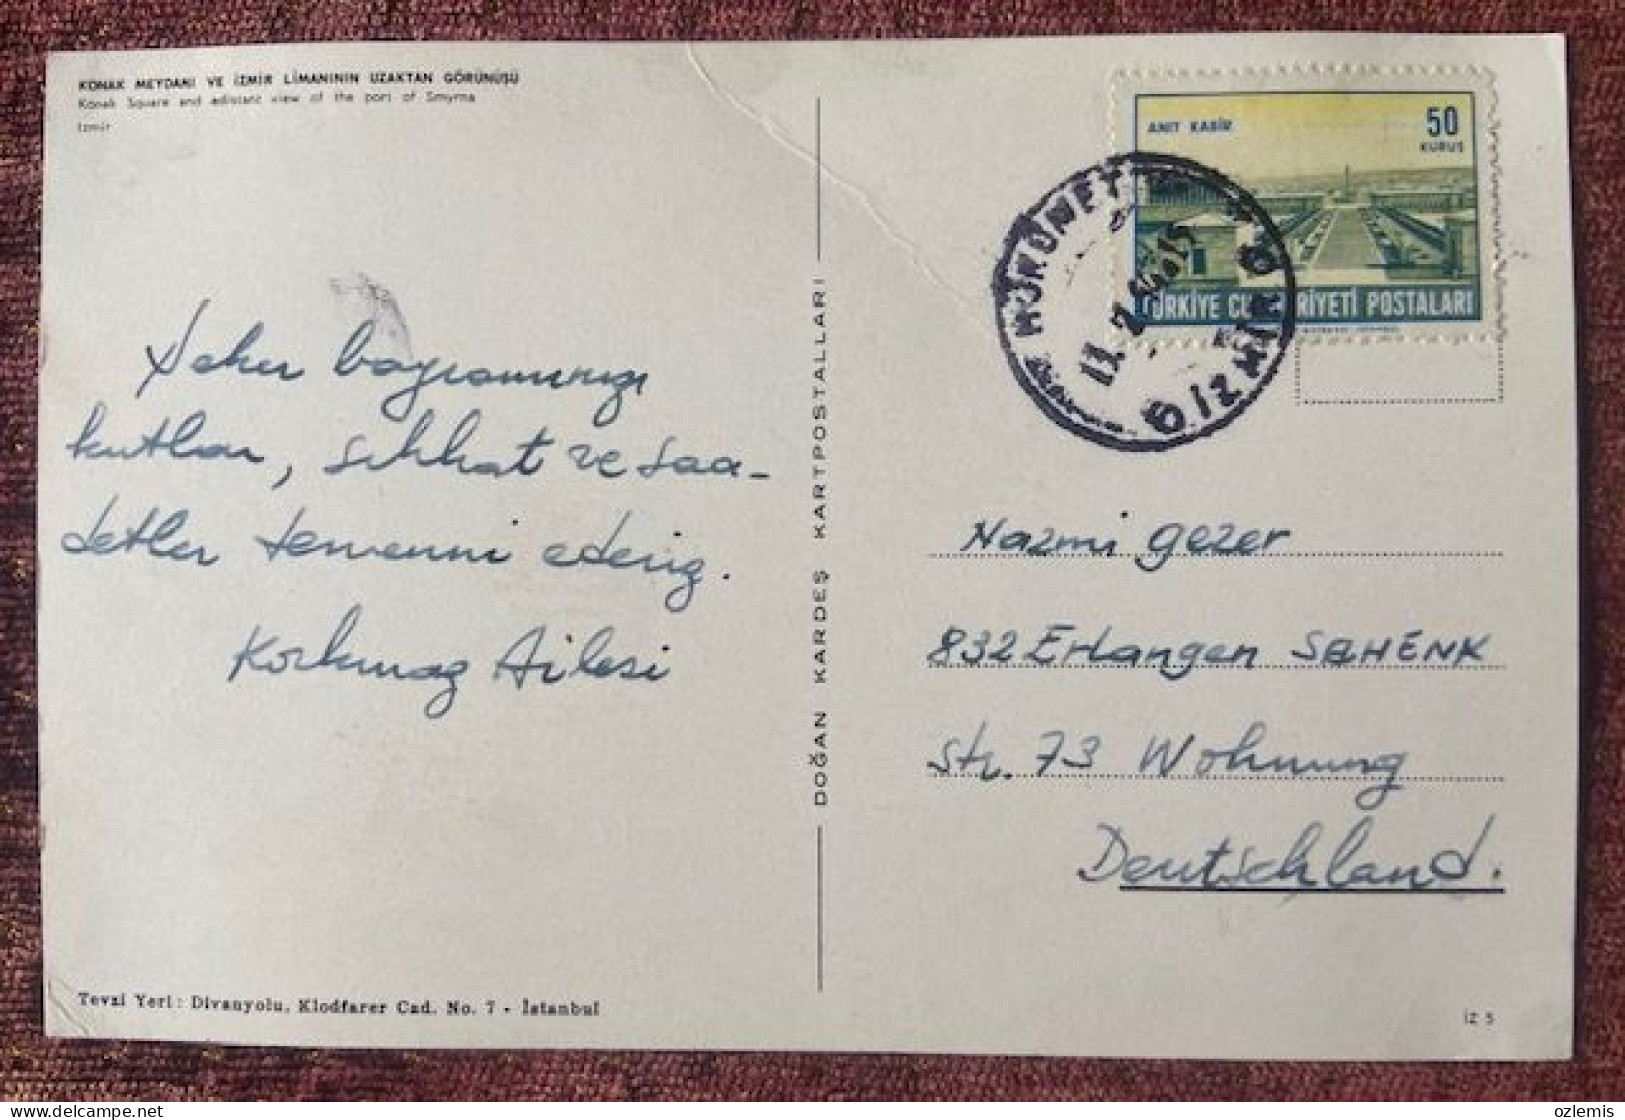 KONAK MEYDANI VE İZMİR LİMANININ UZAKTAN GÖRÜNÜŞÜ
Konak Square and adistant view of the port of Smyrna
Izmir
Şeker bayramınızı
kutlar, sıhhat ve saa-
detler temenni ederiz.
Korkmaz Ailesi
Tevzi Yeri: Divanyolu, Klodfarer Cad. No. 7 - İstanbul
DOĞAN KARDEŞ KARTPOSTALLARI
ANIT KABİR
50
KURUŞ
TÜRKİYE CUMHURİYETİ POSTALARI
HÜKÜMET
11. 2.
İZMİR
Nazmi Gezer
832 Erlangen SCHENK
Str. 73 Wohnung
Deutschland.
İZ 5
özlemis